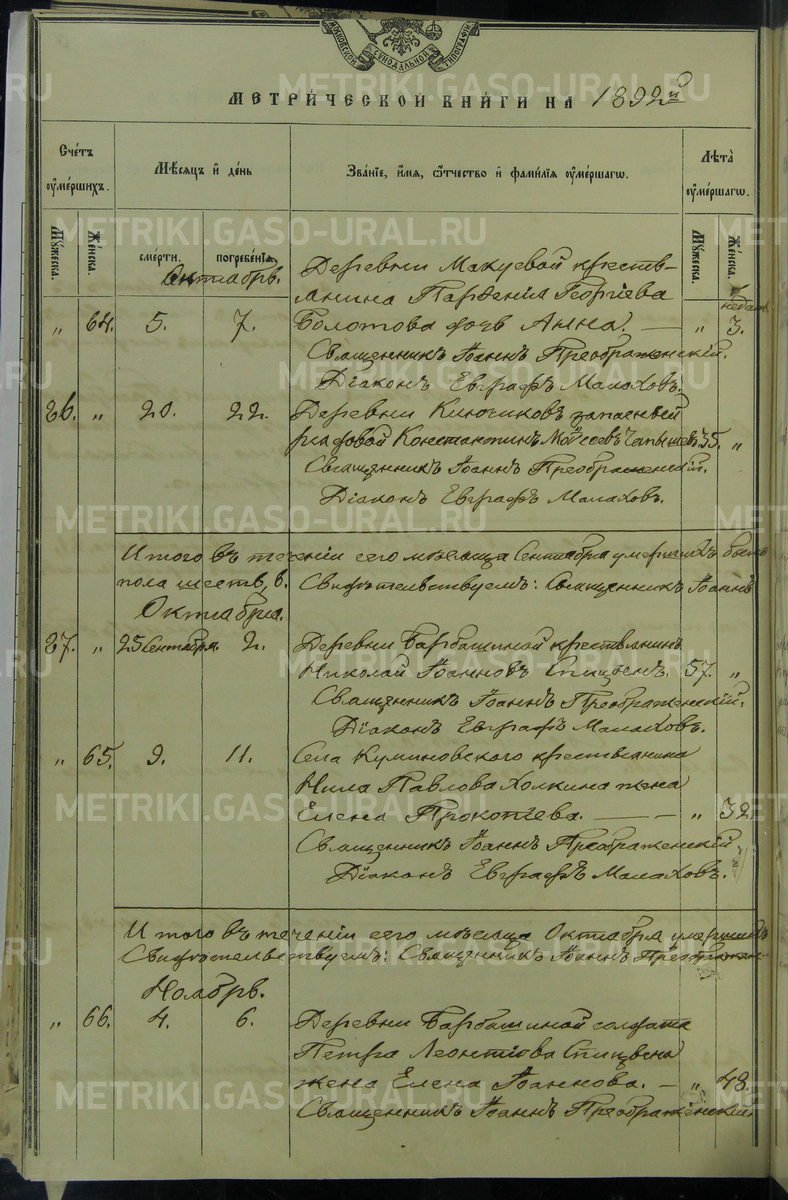 МОСКОВСКОЙ СѴНОДАЛЬНОЙ ТИПОГРАФІИ
МЕТРИ́ЧЕСКОЙ КНИ́ГИ НА 1892й
Сче́тъ ᲂу҆ме́ршихъ.
Мѣ́сяцъ и҆ де́нь
Зва́нїе, и҆́мѧ, ѻ҆́тчество и҆ фами́лїѧ ᲂу҆ме́ршагѡ.
Лѣ́та ᲂу҆ме́ршагѡ.
Мꙋ́жеска. Же́нска. сме́рти. погребе́нїѧ. Мꙋ́жеска. Же́нска.
Октябрь.
Деревни Макуевой крестья-
нина Парѳенія Георгіева недѣль
„ 64. 5. 7. Болотова дочь Анна. — „ 3.
Священникъ Іоаннъ Преображенскій.
Діаконъ Евграфъ Малаховъ.
86. „ 20. 22. Деревни Ключиковъ запасный
рядовой Константинъ Моѵсеевъ 35. „
Священникъ Іоаннъ Преображенскій.
Діаконъ Евграфъ Малаховъ.
Итого въ теченіи сего мѣсяца Сентября умершихъ
пола шесть, 6. Свидѣтельствуемъ: Священникъ Іоаннъ
Октября.
87. „ 25 Сентября. 2. Деревни Барбашиной крестьянинъ
Николай Іоанновъ 57. „
Священникъ Іоаннъ Преображенскій.
Діаконъ Евграфъ Малаховъ.
„ 65. 9. 11. Села Куминовского крестьянина
Нила Павлова Холкина жена
Елена Прокопіева. — „ 32.
Священникъ Іоаннъ Преображенскій.
Діаконъ Евграфъ Малаховъ.
Итого въ теченіи сего мѣсяца Октября умершихъ
Свидѣтельствуемъ: Священникъ Іоаннъ Преображен-
Ноябрь.
„ 66. 4. 6. Деревни Барбашиной солдата
Петра Леонтіова
жена Елена Іоаннова. — „ 48.
Священникъ Іоаннъ Преображенскій.
METRIKI.GASO-URAL.RU